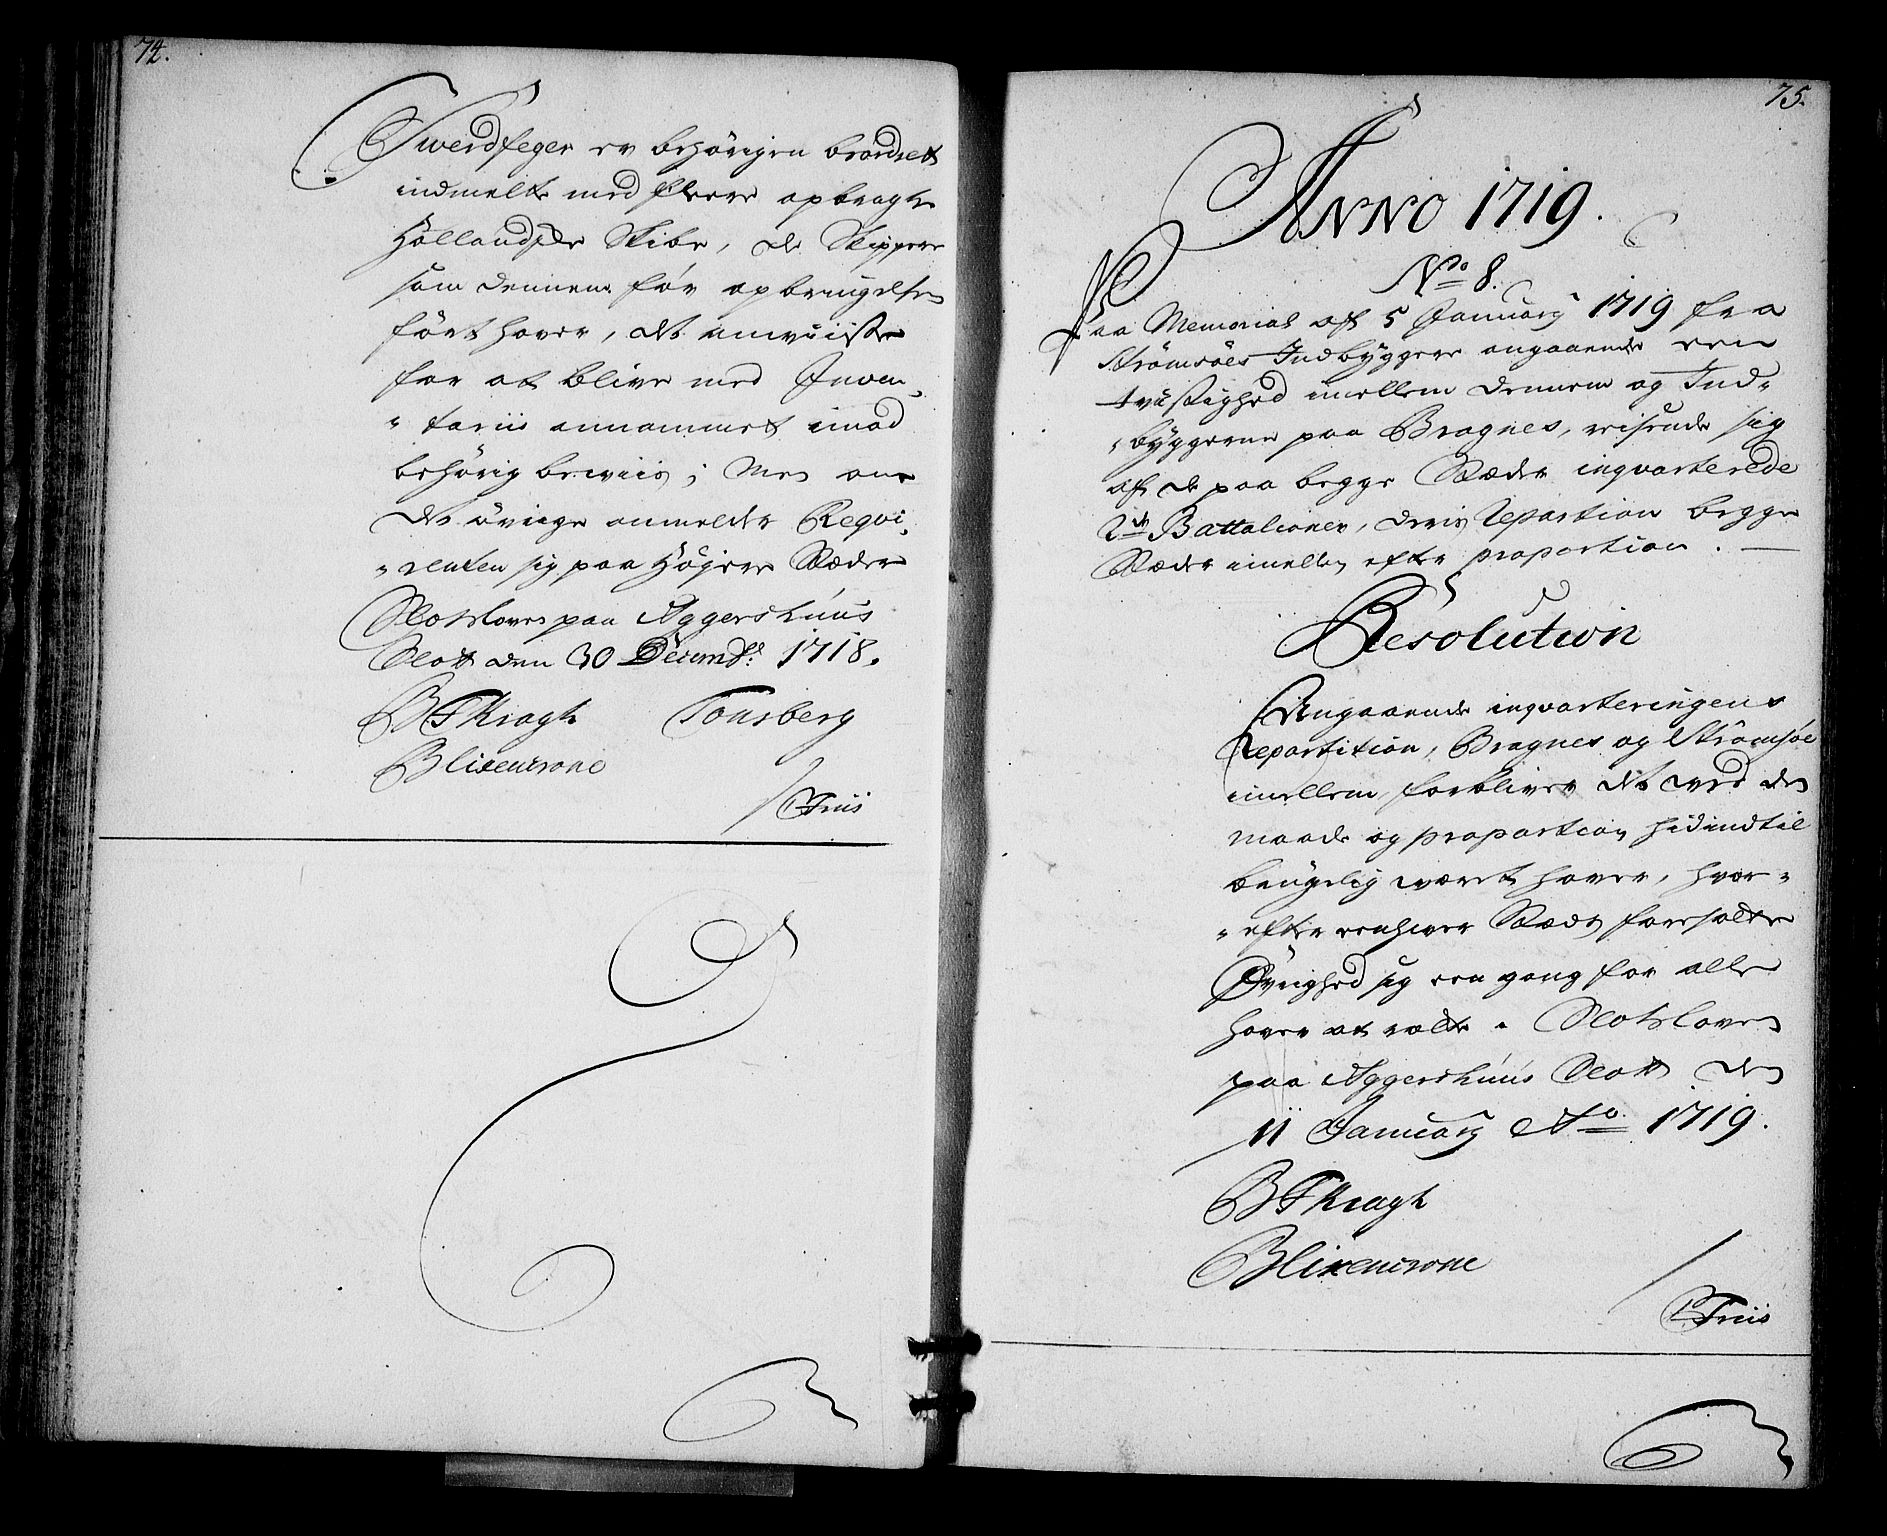 74.
Swerdfeger er behørigen beordret
indmelte med fleere opbragte
Hollandske Skibe, de Skippere
som dennem før opbringelsen
ført hafver, det anviiste
for at blive med Inven-
"tariis annammet imod
behørig beviis; Men om
det øvrige anmelder Reqvi-
"renten sig paa Høyere Stæder
Slotsloven paa Aggershuus
Slott den 30 Decembr: 1718.
B F Kragh Tonsberg
Blixencrone
/ P Friis
75.
Anno 1719.
No 8.
Paa Memorial af 5 January 1719 fra
Strømsøes Indbyggere angaaende een
tvistighed imellem dennem og Ind-
"byggerne paa Bragnes, reisende sig
af de paa begge Stæder inqvarterede
2de Battalioner, deris Repartion begge
Stæder imellem efter proportion. —
Resolution
Angaaende inqvarteringens
Repartition, Bragnes og Strømsøe
imellem, forbliver det ved den
maade og proportion hidindtil
brugelig været hafver, hvor-
"efter eenhver Stæds foresatte
Øvrighed sig een gang for alle
hafver at rette. Slotsloven
paa Aggershuus Slott den
11 January Ao 1719.
B F Kragh
Blixencrone
/ P Friis